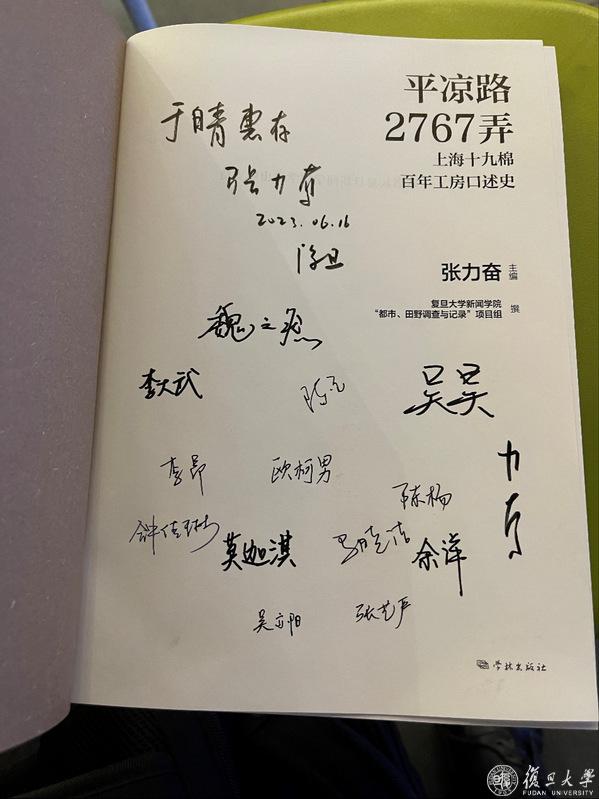 平凉路
2767弄
上海十九棉
百年工房口述史
张力奋 主编
复旦大学新闻学院
“都市、田野调查与记录”项目组 撰
于晴 惠存
张力奋
2023.06.16
复旦
李大武
吴昊
李昂
欧柯男
陈杨
钟佳琳
莫迦淇
余洋
力奋
吴亦阳
张艺严
学林出版社
復旦大學
FUDAN UNIVERSITY